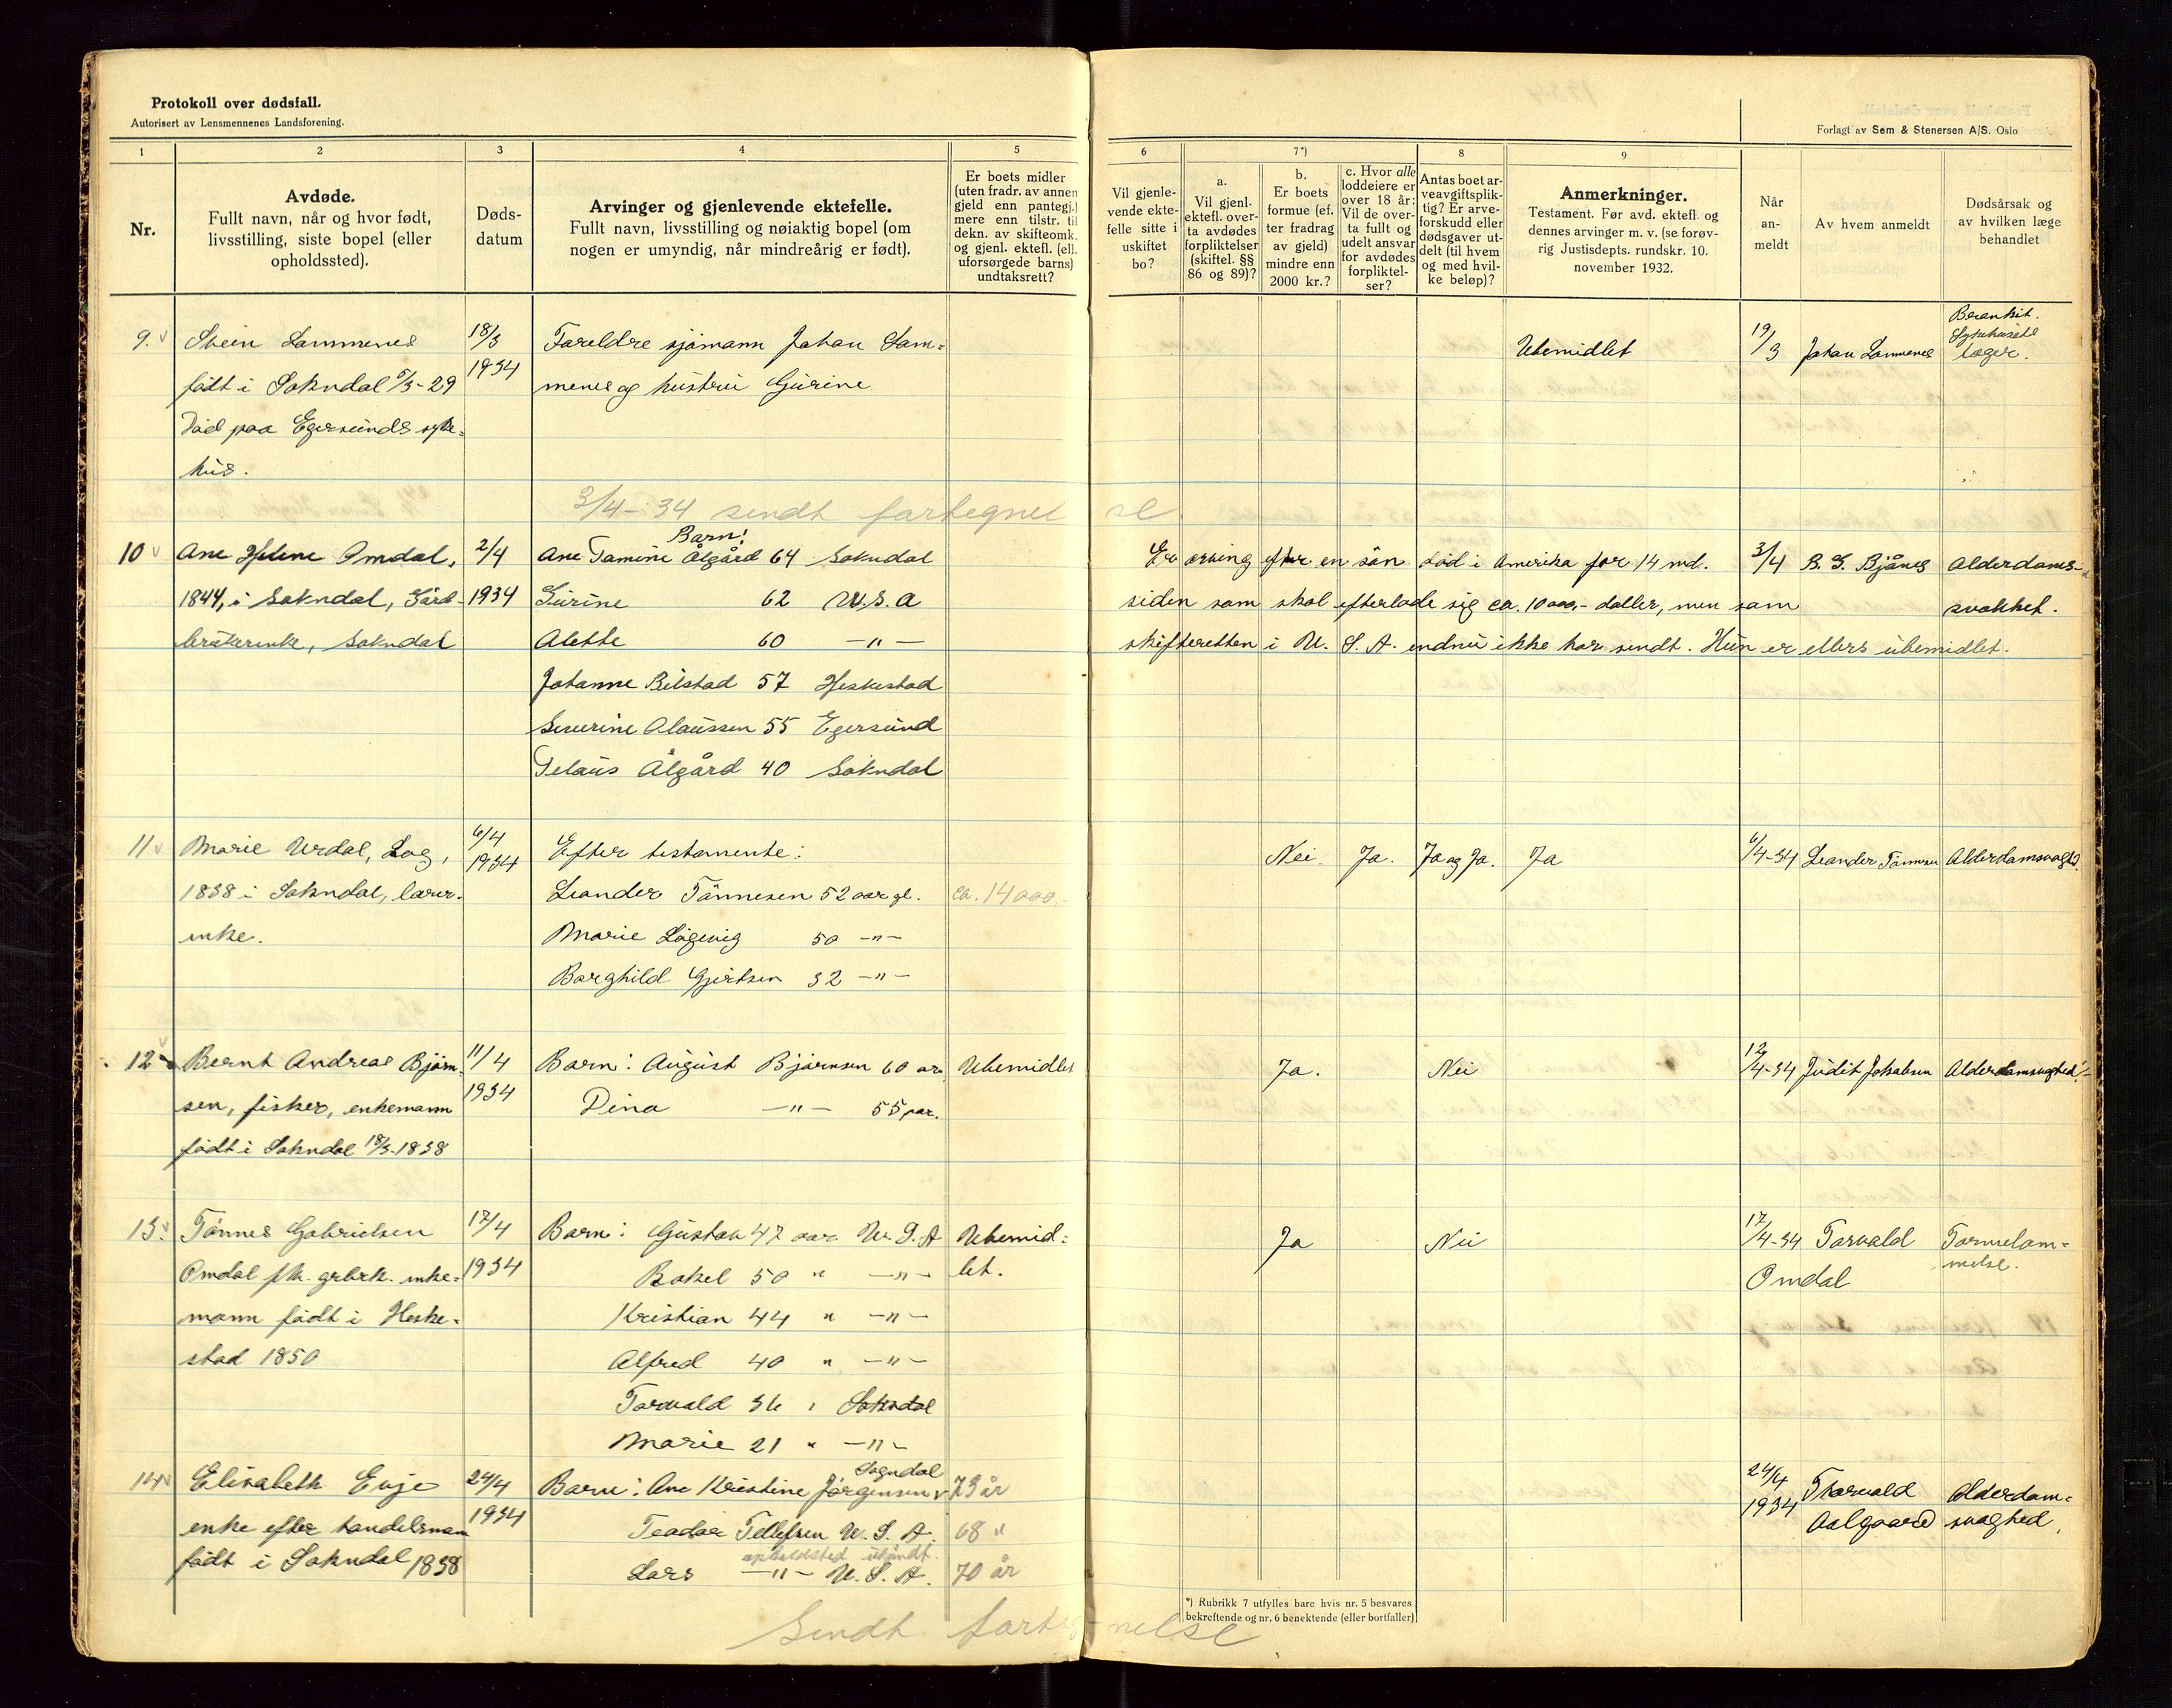 Protokoll over dødsfall.
Autorisert av Lensmennenes Landsforening.
Forlagt av Sem & Stenersen A/S. Oslo
1
2
3
4
5
6
7*)
8
9
Nr.
Avdøde.
Fullt navn, når og hvor født,
livsstilling, siste bopel (eller
opholdssted).
Døds-
datum
Arvinger og gjenlevende ektefelle.
Fullt navn, livsstilling og nøiaktig bopel (om
nogen er umyndig, når mindreårig er født).
Er boets midler
(uten fradr. av annen
gjeld enn pantegj.)
mere enn tilstr. til
dekn. av skifteomk.
og gjenl. ektefl. (ell.
uforsørgede barns)
undtaksrett?
Vil gjenle-
vende ekte-
felle sitte i
uskiftet
bo?
a.
Vil gjenl.
ektefl. over-
ta avdødes
forpliktelser
(skiftel. §§
86 og 89)?
b.
Er boets
formue (ef.
ter fradrag
av gjeld)
mindre enn
2000 kr.?
c. Hvor alle
loddeiere er
over 18 år:
Vil de over-
ta fullt og
udelt ansvar
for avdødes
forpliktel-
ser?
Antas boet ar-
veavgiftsplik-
tig? Er arve-
forskudd eller
dødsgaver ut-
delt (til hvem
og med hvil-
ke beløp)?
Anmerkninger.
Testament. Før avd. ektefl. og
dennes arvinger m. v. (se forøv-
rig Justisdepts. rundskr. 10.
november 1932.
Når
an-
meldt
Av hvem anmeldt
Dødsårsak og
av hvilken læge
behandlet
9.
Stein Lammenes
født i Sokndal 5/3-29
Død paa Egersunds syke-
hus.
18/3
1934
Foreldre sjømann Johan Lam-
menes og hustru Gurine
Ubemidlet
19/3
Johan Lammenes
Sykehusets
læger.
3/4-34 sendt fortegnelse
10
Ane Helene Omdal,
1844, i Sokndal, Gård-
brukerenke, Sokndal
2/4
1934
Barn:
Ane Tomine Ålgård 64 Sokndal
Gurine 62 U.S.A
Alette 60 -"-
Johanne Bilstad 57 Heskestad
Severine Olaussen 55 Egersund
Pelaus Ålgård 40 Sokndal
Er arving efter en søn død i Amerika for 14 md.
siden som skal efterlade sig ca. 10000,- daller, men som
skifteretten i U. S. A. endnu ikke har sendt. Hun er ellers ubemidlet.
3/4
B. G. Bjånes
Alderdoms-
svakhet.
11
Marie Urdal, Log,
1838 i Sokndal, lærer-
enke.
6/4
1934
Efter testamente:
Leander Tønnesen 52 aar gl.
Marie Løgevig 50 -"-
Borghild Gjertsen 32 -"-
ca. 14000.-
Nei.
Ja.
Ja og Ja.
Ja
6/4-34
Leander Tønnesen
Alderdomsvaghed.
12
Bernt Andreas Bjørn-
sen, fisker, enkemann
født i Sokndal 18/3-1838
11/4
1934
Barn: August Bjørnsen 60 aar
Dina -"- 55 aar.
Ubemidlet
Ja.
Nei
12/4-34
Judit Jakobsen
Alderdomsvaghed.
13.
Tønnes Gabrielsen
Omdal fh. grbrk. enke-
mann født i Heske-
stad 1850
17/4
1934
Barn: Gustav 47 aar U. S. A
Bokel 50 " -"-
Kristian 44 " -"-
Alfred 40 " -"-
Torvald 36 " Sokndal
Marie 21 " -"-
Ubemid-
let.
Ja
Nei
17/4-34
Torvald
Omdal
14
Elisabeth Evje
enke efter handelsman
født i Sokndal 1838
24/4
1934
Sogndal
Barn: Ane Kristine Jørgensen 73 år
Teodor Tellefsen U. S. A. 68 "
opholdsted ukjendt.
Lars -"- U. S. A. 70 år
24/4
1934
Thorvald
Aalgaard
Alderdom-
svaghed.
*) Rubrikk 7 utfylles bare hvis nr. 5 besvares
bekreftende og nr. 6 benektende (eller bortfaller)
Sendt fortegnelse